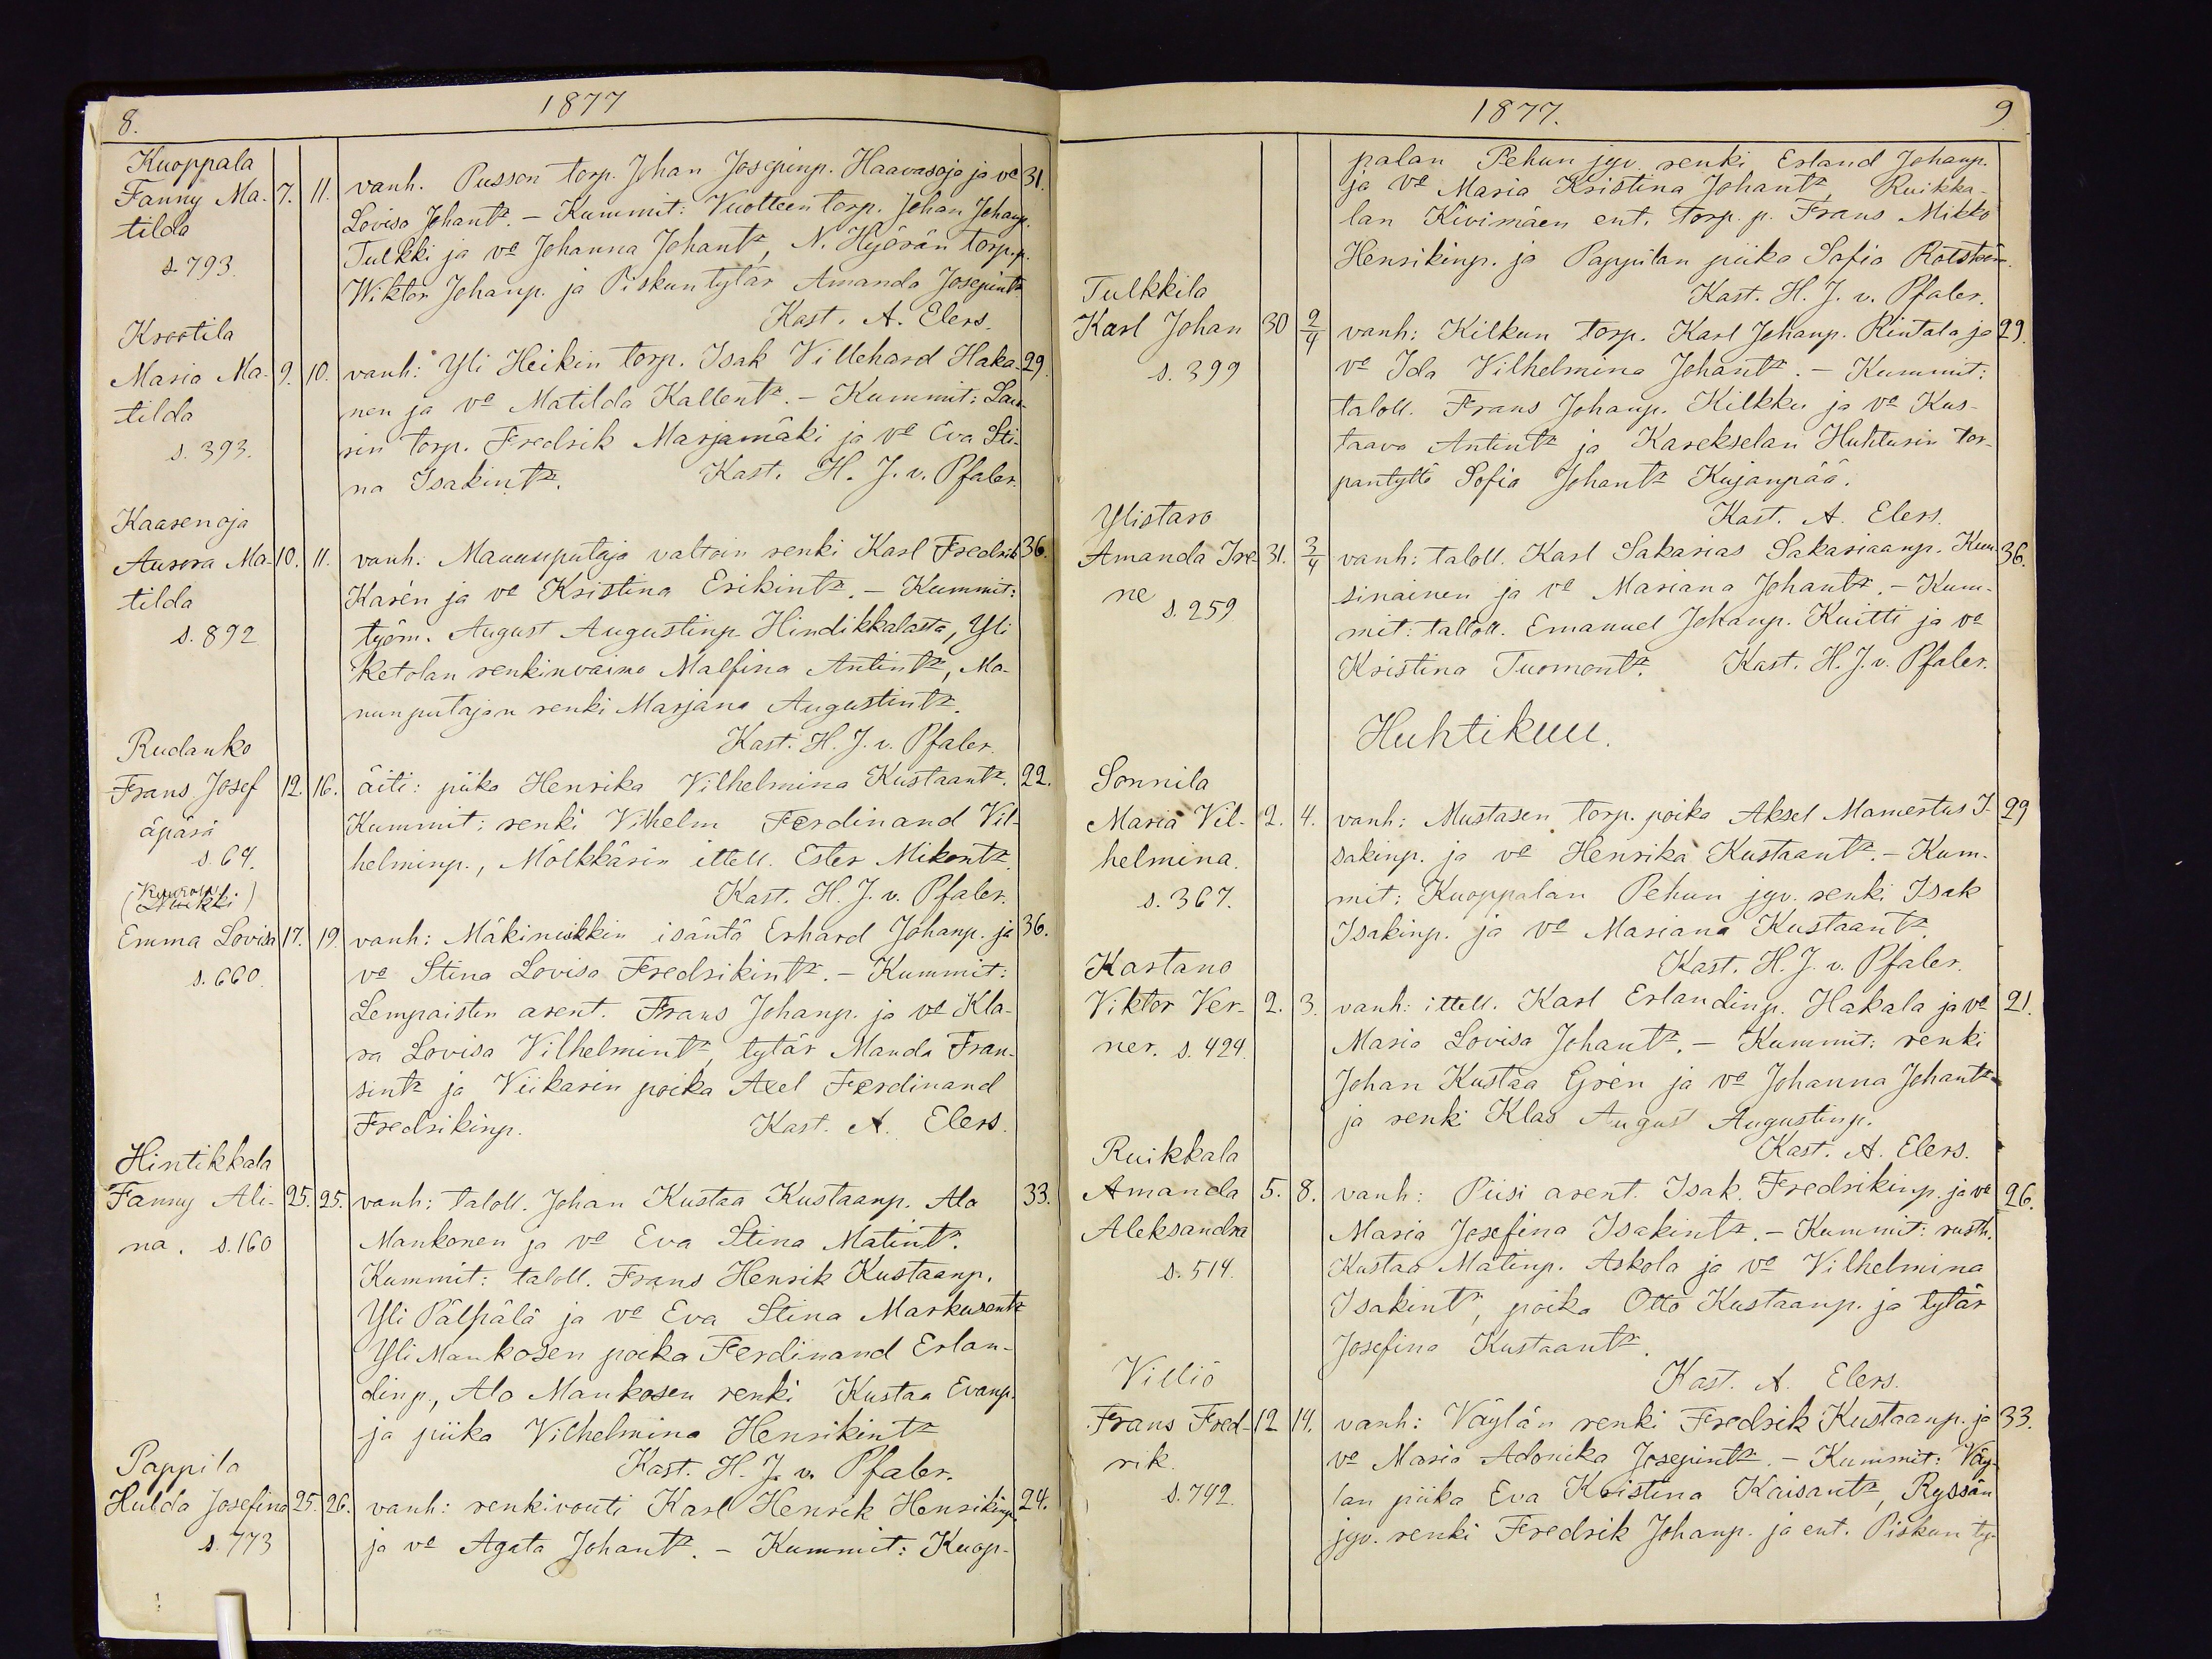 8.
1877
Kuoppala
Fanny Ma- 7. 11. vanh. Pusson torp. Johan Josepinp. Haavasoja ja vo 31.
tilda Lovisa Johantr. – Kummit: Vuolteen torp. Johan Johanp.
s. 793. Tulkki ja vo Johanna Johantr, N. Hyörän torp.p.
Wiktor Johanp. ja Piskun tytär Amanda Josepintr
Kast. A. Elers.
Krootila
Maria Ma- 9. 10. vanh: Yli Heikin torp. Isak Villehard Haka- 29.
tilda nen ja vo Matilda Kallentr. – Kummit: Lau-
s. 393. rin torp. Fredrik Marjamäki ja vo Eva Sti-
na Isakintr. Kast. H. J. v. Pfaler.
Kaarenoja
Aurora Ma- 10. 11. vanh: Maununputaja valtoin renki Karl Fredrik 36.
tilda Karén ja vo Kristina Erikintr. – Kummit:
s. 892 työm. August Augustinp. Hindikkalasta, Yli
Ketolan renkinvaimo Malfina Antintr, Ma-
nunputajan renki Marjana Augustintr.
Kast. H. J. v. Pfaler.
Rudanko
Frans Josef 12. 16. äiti: piika Henrika Vilhelmina Kustaantr. 22.
äpärä Kummit: renki Vilhelm Ferdinand Vil-
s. 64. helminp., Mölkkärin ittell. Ester Mikontr.
Kast. H. J. v. Pfaler.
Emma Lovisa 17. 19. vanh: Mäkinuikkin isäntä Erhard Johanp. ja 36.
s. 660. vo Stina Lovisa Fredrikintr. – Kummit:
Lempaisten arent. Frans Johanp. ja vo Kla-
ra Lovisa Vilhelmintr, tytär Manda Fran-
sintr ja Viikarin poika Axel Ferdinand
Fredrikinp. Kast. A. Elers.
Hintikkala
Fanny Ali- 25. 25. vanh: taloll. Johan Kustaa Kustaanp. Ala 33.
na. s. 160 Mankonen ja vo Eva Stina Matintr.
Kummit: taloll. Frans Henrik Kustaanp.
Yli Pälpälä ja vo Eva Stina Markusentr
Yli Mankosen poika Ferdinand Erlan-
dinp., Ala Mankosen renki Kustaa Evanp.
ja piika Vilhelmina Henrikintr
Kast. H. J. v. Pfaler.
Pappila
Hulda Josefina 25. 26. vanh: renkivouti Karl Henrik Henrikinp. 24.
s. 773 ja vo Agata Johantr. – Kummit: Kuop-
1877.
9
palan Pehun jyv. renki Erland Johanp.
ja vo Maria Kristina Johantr, Ruikka-
lan Kivimäen ent. torp. p. Frans Mikko
Henrikinp. ja Pappilan piika Sofia Rotstén.
Kast. H. J. v. Pfaler.
Tulkkila
Karl Johan 30 2/4 vanh: Kilkun torp. Karl Johanp. Rintala ja 29.
s. 399 vo Ida Vilhelmina Johantr. – Kummit:
taloll. Frans Johanp. Kilkku ja vo Kus-
taava Antintr ja Karekselan Huhturin tor-
pantyttö Sofia Johantr Kujanpää.
Kast. A. Elers.
Ylistaro
Amanda Ire- 31. 3/4 vanh: taloll. Karl Sakarias Sakariaanp. Kuu- 36.
ne s. 259. sinainen ja vo Mariana Johantr. – Kum-
mit: talloll. Emanuel Johanp. Kuitti ja vo
Kristina Tuomontr. Kast. H. J. v. Pfaler.
Huhtikuu.
Sonnila
Maria Vil- 2. 4. vanh: Mustasen torp. poika Aksel Mamertus I- 29
helmina. sakinp. ja vo Henrika Kustaantr. – Kum-
s. 367. mit: Kuoppalan Pehun jyv. renki Isak
Isakinp. ja vo Mariana Kustaantr.
Kast. H. J. v. Pfaler.
Kartano
Viktor Ver- 2. 3. vanh: ittell. Karl Erlandinp. Hakala ja vo 21.
ner. s. 424. Maria Lovisa Johantr. – Kummit: renki
Johan Kustaa Grén ja vo Johanna Johantr
ja renki Klas August Augustinp.
Kast. A. Elers.
Ruikkala
Amanda 5. 8. vanh: Piisi arent. Isak Fredrikinp. ja vo 26.
Aleksandra Maria Josefina Isakintr. – Kummit: rusth.
s. 514. Kustaa Matinp. Askola ja vo Vilhelmina
Isakintr, poika Otto Kustaanp. ja tytär
Josefina Kustaantr.
Kast. A. Elers.
Villiö
Frans Fred- 12 14. vanh: Väylän renki Fredrik Kustaanp. ja 33.
rik. vo Maria Adonika Josepintr. – Kummit: Väy-
s. 742. län piika Eva Kristina Kaisantr, Ryssän
jyv. renki Fredrik Johanp. ja ent. Piskun ty-